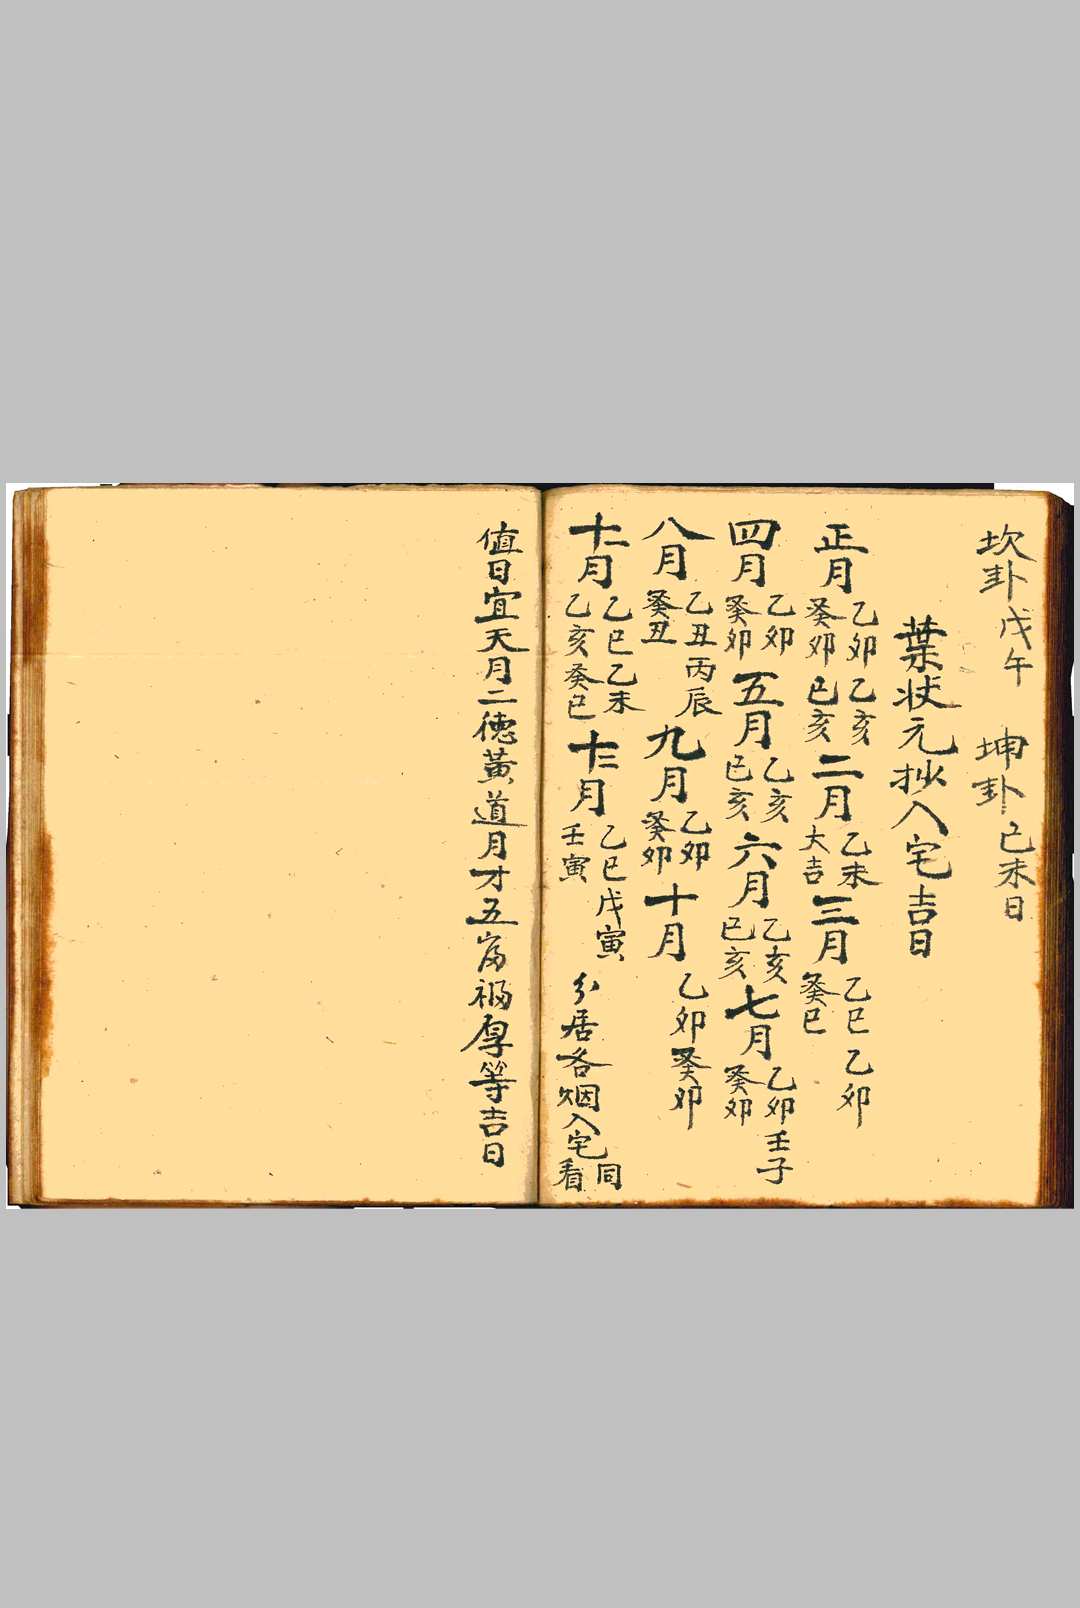 坎卦戊午 坤卦己未日
葉状元抄入宅吉日
正月乙卯乙亥癸卯己亥二月乙未大吉三月乙巳乙卯癸巳
四月乙卯癸卯五月乙亥己亥六月乙亥己亥七月乙卯壬子癸卯
八月乙丑丙辰癸丑九月乙卯癸卯十月乙卯癸卯
十一月乙巳乙未乙亥癸巳十二月乙巳戊寅壬寅 分居各烟入宅同看
值日宜天月二德黃道月才五富福厚等吉日